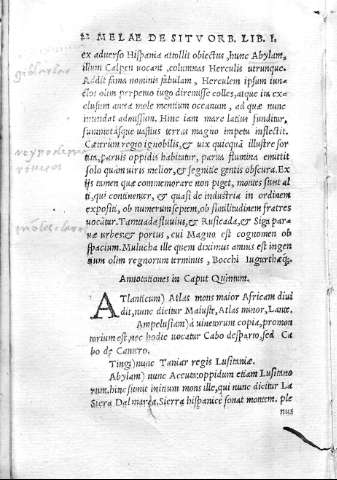 22 MELAE DE SITV ORB. LIB. I.
ex aduerso Hispania attollit obiectus, hunc Abylam,
illum Calpen uocant, columnas Herculis utrunque.
Addit fama nominis fabulam, Herculem ipsum iun-
ctos olim perpetuo iugo diremisse colles, atque ita ex-
clusum antea mole montium oceanum, ad quæ nunc
inundat admissum. Hinc iam mare latius funditur,
summotasque uastius terras magno impetu inflectit.
Cæterum regio ignobilis, & uix quicquā illustre for
tita, paruis oppidis habitatur, parua flumina emittit
solo quàm uiris melior, & segnitie gentis obscura. Ex
ijs tamen quæ commemorare non piget, montes sunt al
ti, qui continenter, & quasi de industria in ordinem
expositi, ob numerum septem, ob similitudinem fratres
uocātur. Tamuada fluuius, & Rusicada, & Siga par
uæ urbes: & portus, cui Magno est cognomen ob
spacium. Mulucha ille quem diximus amnis est ingen
tium olim regnorum terminus, Bocchi Iugurthæque.
Annotationes in Caput Quintum.
Atlanticum) Atlas mons maior Africam diui
dit, nunc dicitur
Ampelusiam) à uinearum copia, promon
torium est, nec hodie uocatur Cabo despario, sed Ca
bo de
Tingi) nunc Taniar regis Lusitaniæ.
Abylam) nunc oppidum etiam Lusitano
rum. hinc sumit initium mons ille, qui nunc dicitur La
Sierra Dalmares, Sierra hispanice sonat montem. ple
nus